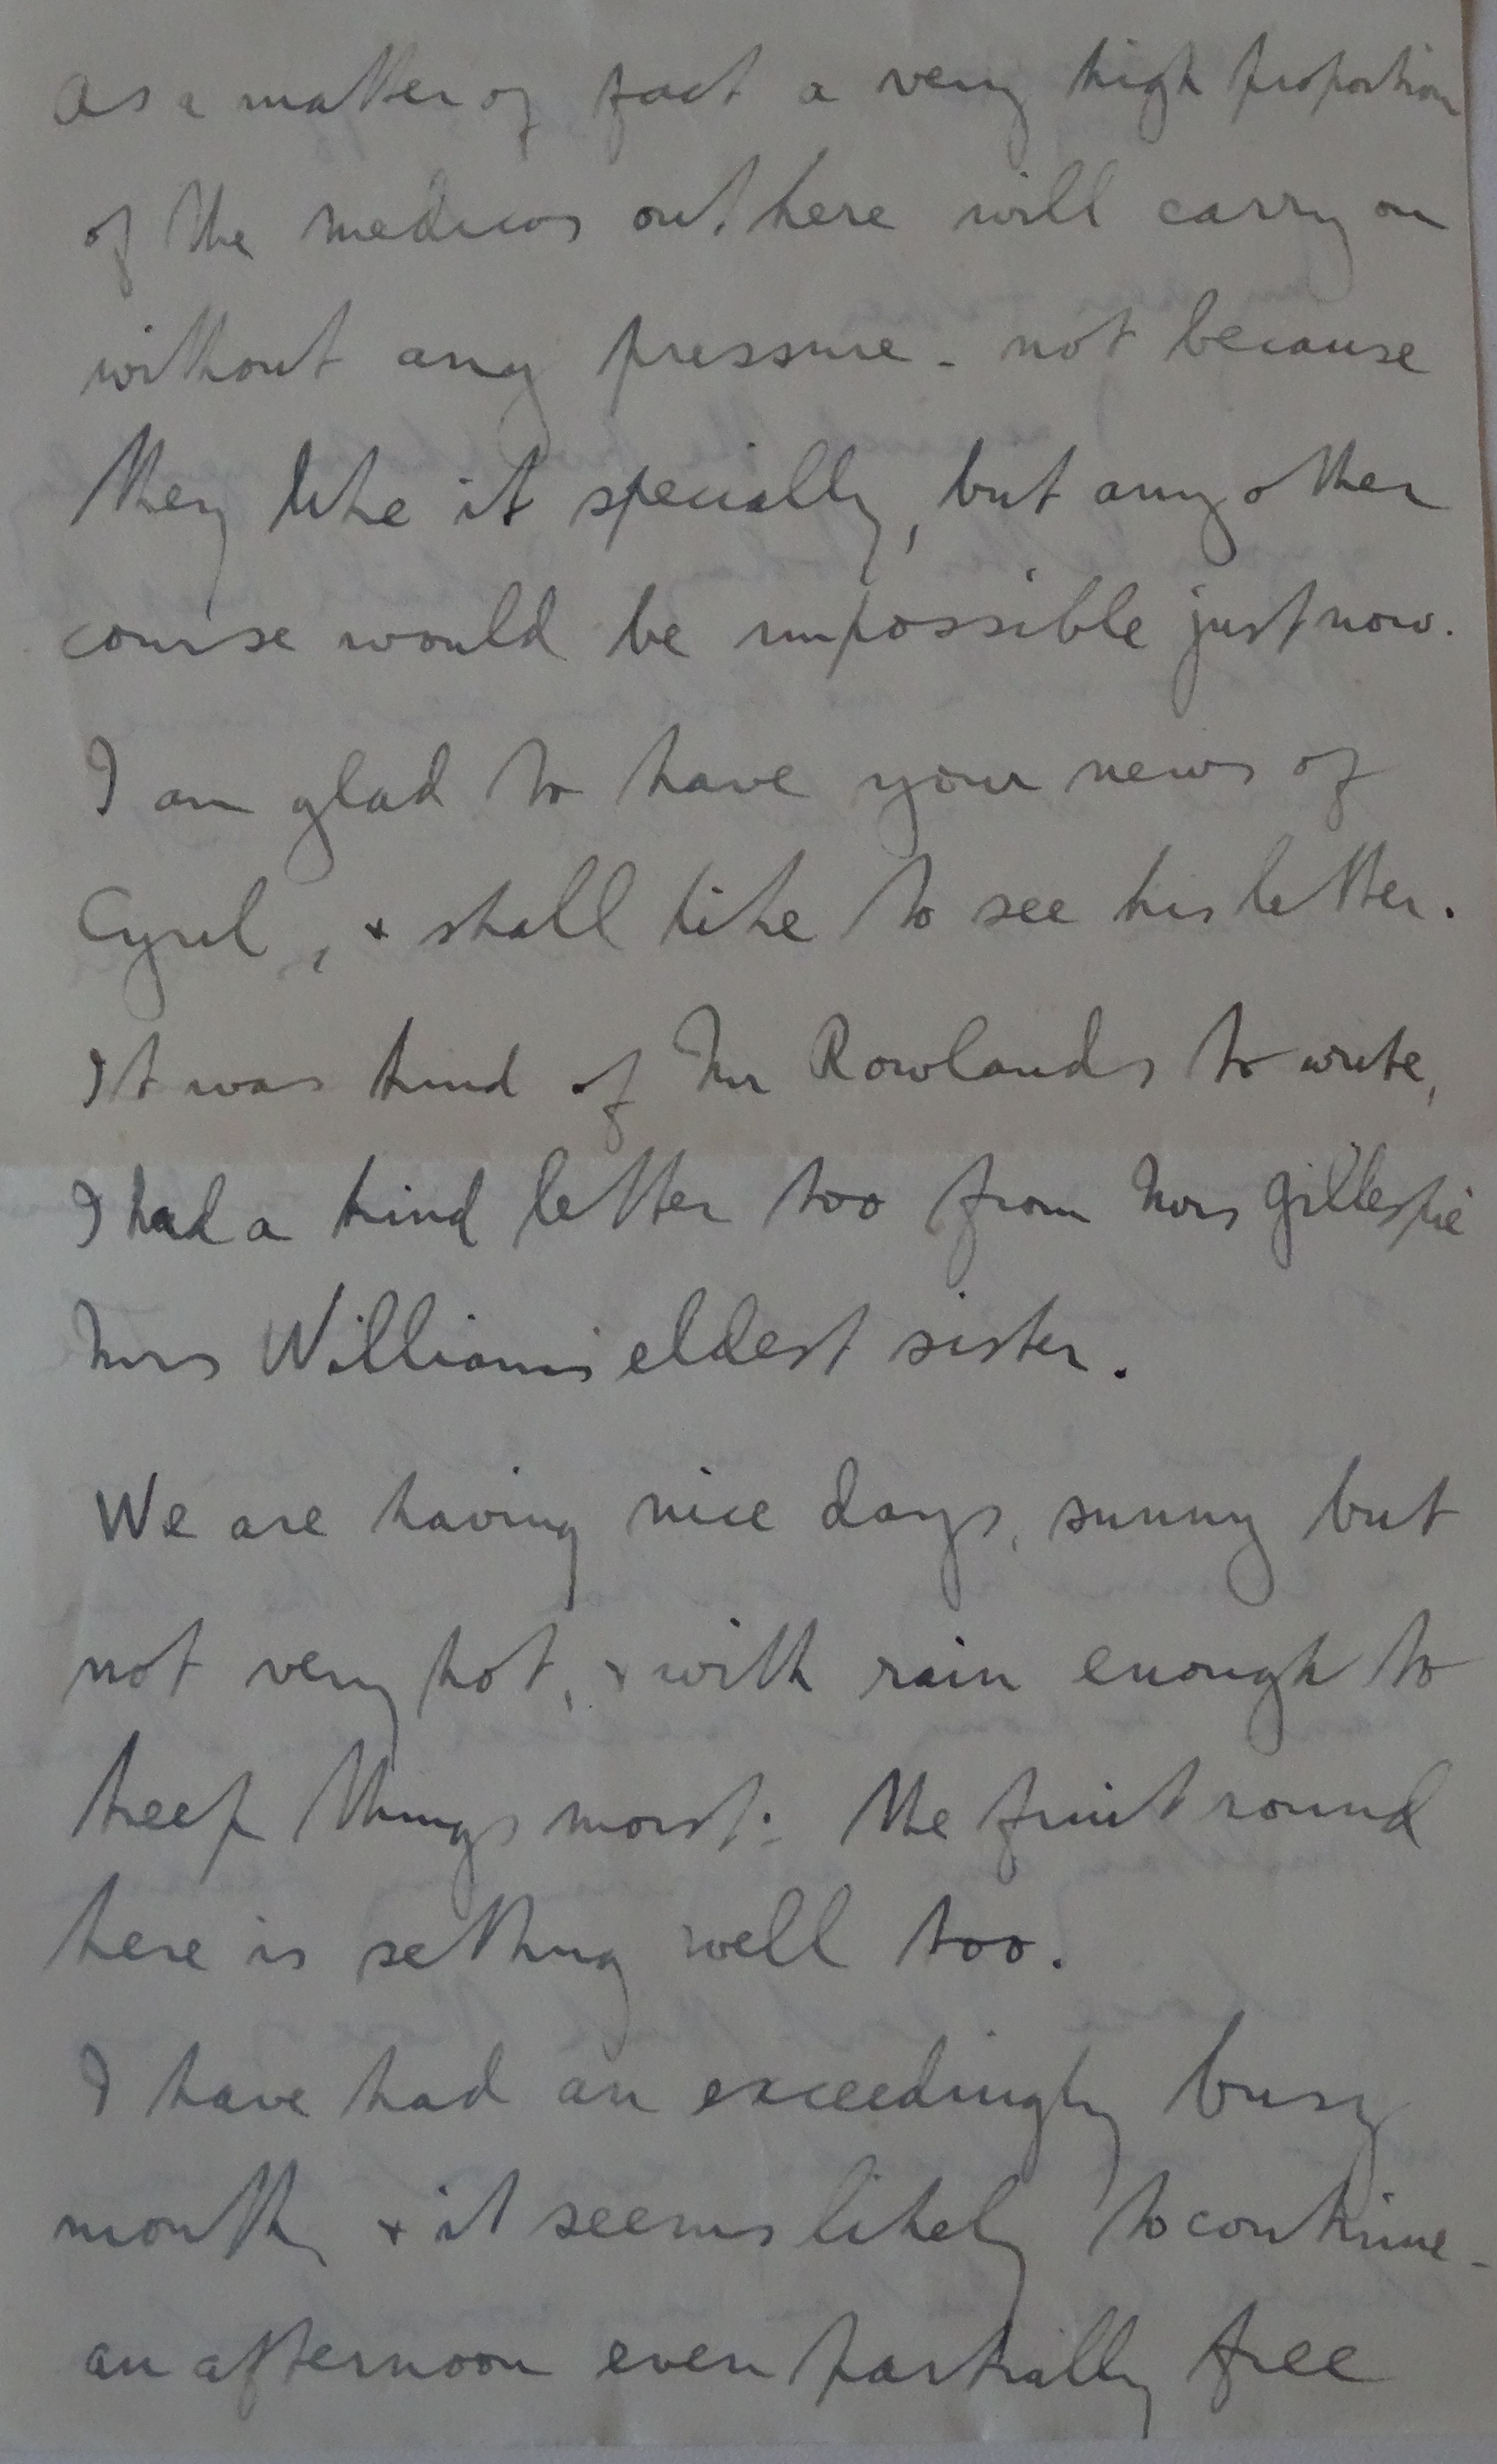 As a matter of fact a very high proportion
of the medicos out here will carry on
without any pressure - not because
they like it specially, but any other
course would be impossible just now.
I am glad to have your news of
Cyril, & shall like to see his letter.
It was kind of Mr Rowlands to write,
I had a kind letter too from Mrs Gillespie
Mrs Williams' eldest sister.
We are having nice days, sunny but
not very hot, & with rain enough to
keep things moist: the fruit round
here is setting well too.
I have had an exceedingly busy
month, & it seems likely to continue -
an afternoon even partially free